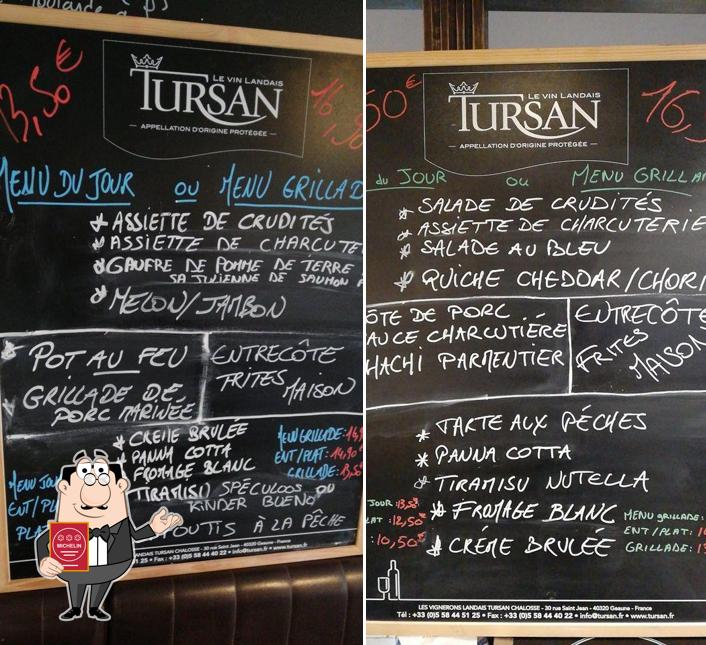 13,50€
LE VIN LANDAIS
TURSAN
APPELLATION D'ORIGINE PROTÉGÉE
16,50
MENU DU JOUR OU MENU GRILLAD
* ASSIETTE DE CRUDITÉS
* ASSIETTE DE CHARCUTE
* GAUFRE DE POMME DE TERRE
SA JULIENNE DE SAUMON F
* MELON/JAMBON
POT AU FEU
GRILLADE DE
PORC MARINÉE
ENTRECÔTE
FRITES
MAISON
* CRÈME BRULÉE
* PANNA COTTA
* FROMAGE BLANC
TIRAMISU SPÉCULOOS OU
KINDER BUENO
FOUTIS À LA PÊCHE
MENU GRILLADE:
ENT/PLAT: 14,90€
GRILLADE: 13,50
MENU JOU
ENT/PL
PLA
MICHELIN
LANDAIS TURSAN CHALOSSE - 30 rue Saint Jean - 40320 Geaune - France
+33 (0)5 58 44 51 25 • Fax : +33 (0)5 58 44 40 22 • info@tursan.fr • www.tursan.fr
50€
LE VIN LANDAIS
TURSAN
APPELLATION D'ORIGINE PROTÉGÉE
16,5
du JOUR OU MENU GRILLA
* SALADE DE CRUDITÉS
* ASSIETTE DE CHARCUTERIE
* SALADE AU BLEU
* QUICHE CHEDDAR/CHORI
ÔTE DE PORC
AUCE CHARCUTIÈRE
HACHI PARMENTIER
ENTRECÔTE
FRITES
MAISON
* TARTE AUX PÉCHES
* PANNA COTTA
* TIRAMISU NUTELLA
* FROMAGE BLANC
* CRÉME BRULÉE
JOUR: 13,50€
LAT: 12,50€
: 10,50€
MENU GRILLADE:
ENT/PLAT: 1
GRILLADE: 1
LES VIGNERONS LANDAIS TURSAN CHALOSSE - 30 rue Saint Jean - 40320 Geaune - France
Tél : +33 (0)5 58 44 51 25 • Fax : +33 (0)5 58 44 40 22 • info@tursan.fr • www.tursan.fr